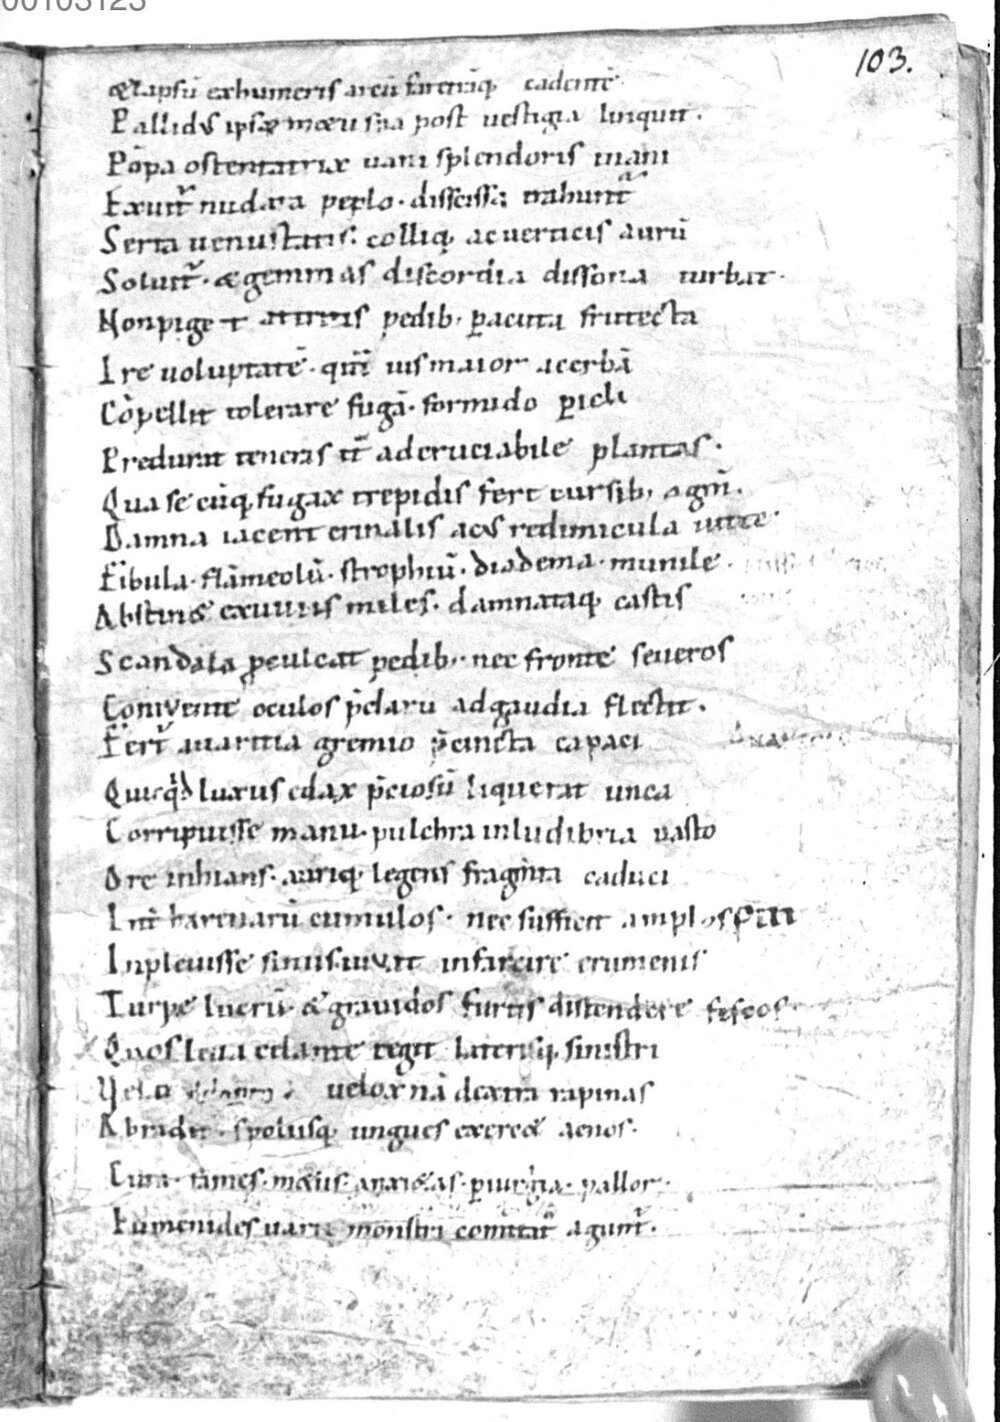 00103123
103.
& lapsū ex humeris arcū faretrāq; cadentē.
Pallidus ipse metu sua post uestigia linquit.
Pōpa ostentatrix uani splendoris inani
Exuitur nudata peplo. discissa trahuntur
Serta uenustatis. colliq; ac uerticis aurū
Soluitur. & gemmas discordia dissona turbat.
Non piget attritis pedib; p̄ acuta frutecta
Ire uoluptatē. qm̄ uis maior acerbā
Cōpellit tolerare fugā. formido p̄icli
Predurat teneras it̄ ad cruciabile plantas.
Qua se cūq; fugax trepidis fert cursib; agm̄.
Damna iacent crinalis acus redimicula uitte
Fibula. flāmeolū. strophiū. diadema. munile.
Abstin& exuuiis miles. damnataq; castis
Scandala p̄culcat pedib;. nec fronte seueros
Coniuente oculos p̄darū ad gaudia flectit.
Fertur auaritia gremio p̄cincta capaci
Quicqd luxus edax p̄ciosū liquerat unca
Corripuisse manu. pulchra in ludibria uasto
Ore inhians. auriq; legens fragm̄ta caduci
Int̄ harenarū cumulos. nec sufficit amplos
Inpleuisse sinus. iuuat infarcire crumenis
Turpe lucrū. & grauidos furtis distendere fiscos.
Quos leua celante tegit laterisq; sinistri
Uelo uelox nā dextra rapinas
Abradit. spoliisq; ungues exerc& aenos.
Cura. fames. m&us. anxi&as. p̄iuria. pallor.
Eumenides uarie monstri comitatus agunt.